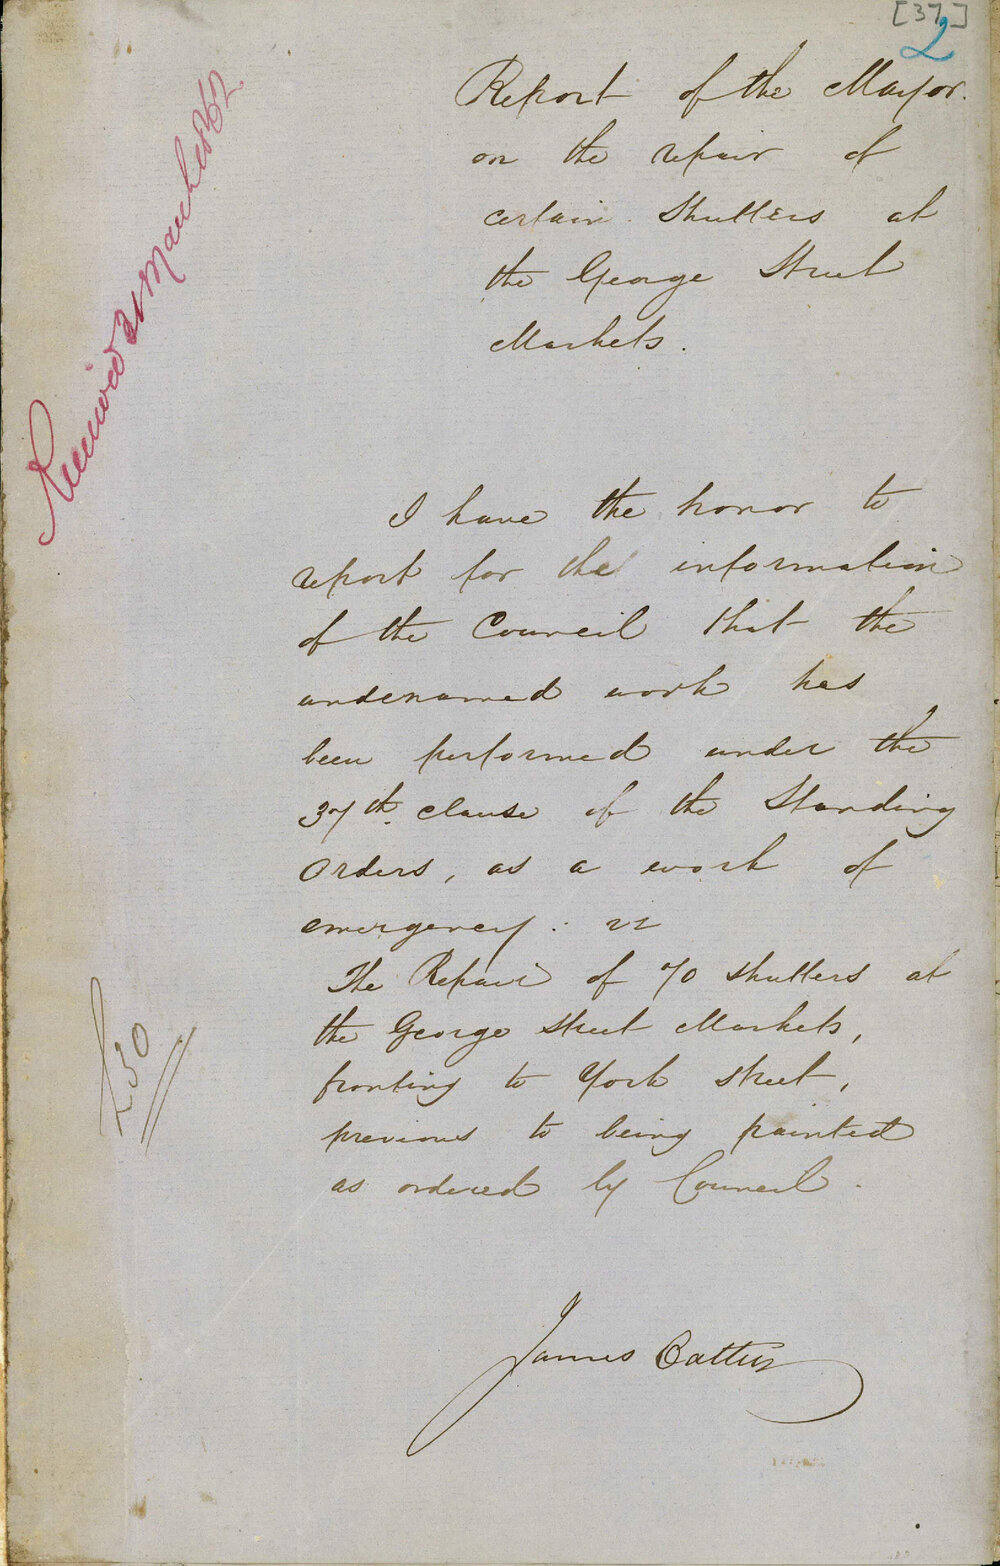 [37]
2
Report of the Mayor.
on the repair of
certain Shutters at
the George Street
Markets.
Received 21 March 1862
I have the honor to
report for the information
of the Council that the
undernamed work has
been performed under the
37th clause of the Standing
Orders, as a work of
emergency :
The Repair of 70 shutters at
the George Street Markets,
fronting to York Street,
previous to being painted
as ordered by Council.
£30
James